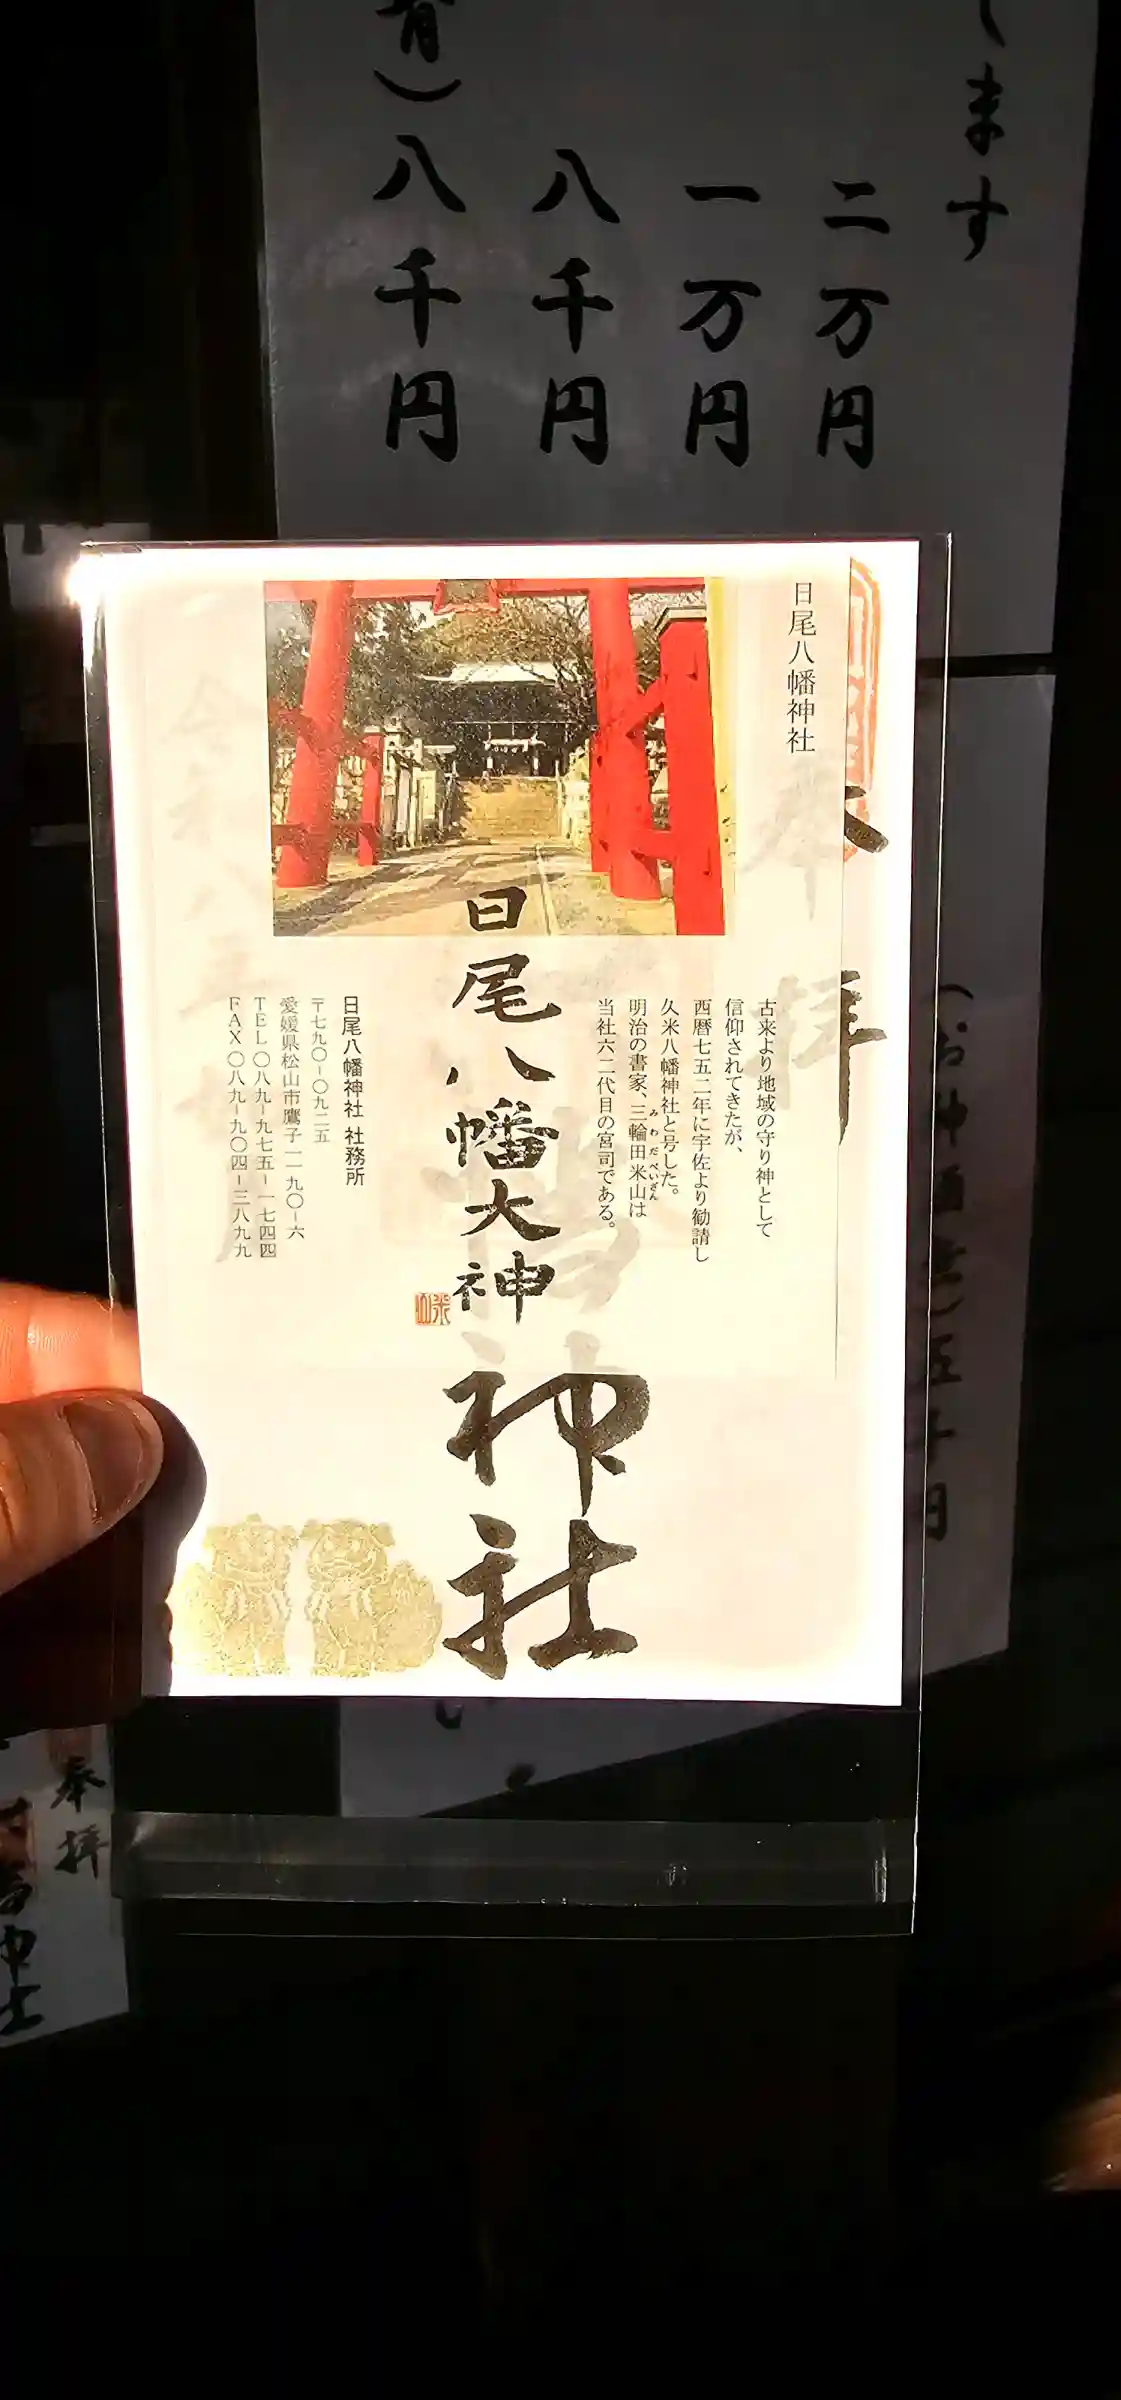 します
二万円
一万円
八千円
八千円
日尾八幡神社
古来より地域の守り神として
信仰されてきたが、
西暦七五二年に宇佐より勧請し
久米八幡神社と号した。
明治の書家、三輪田米山は
みわだべいざん
当社六二代目の宮司である。
日尾八幡大神
米山
日尾八幡神社 社務所
〒七九〇-〇九二五
愛媛県松山市鷹子一一九〇-六
TEL 〇八九-九七五-一七四四
FAX 〇八九-九〇四-三八九九
奉拝
神社
奉拝